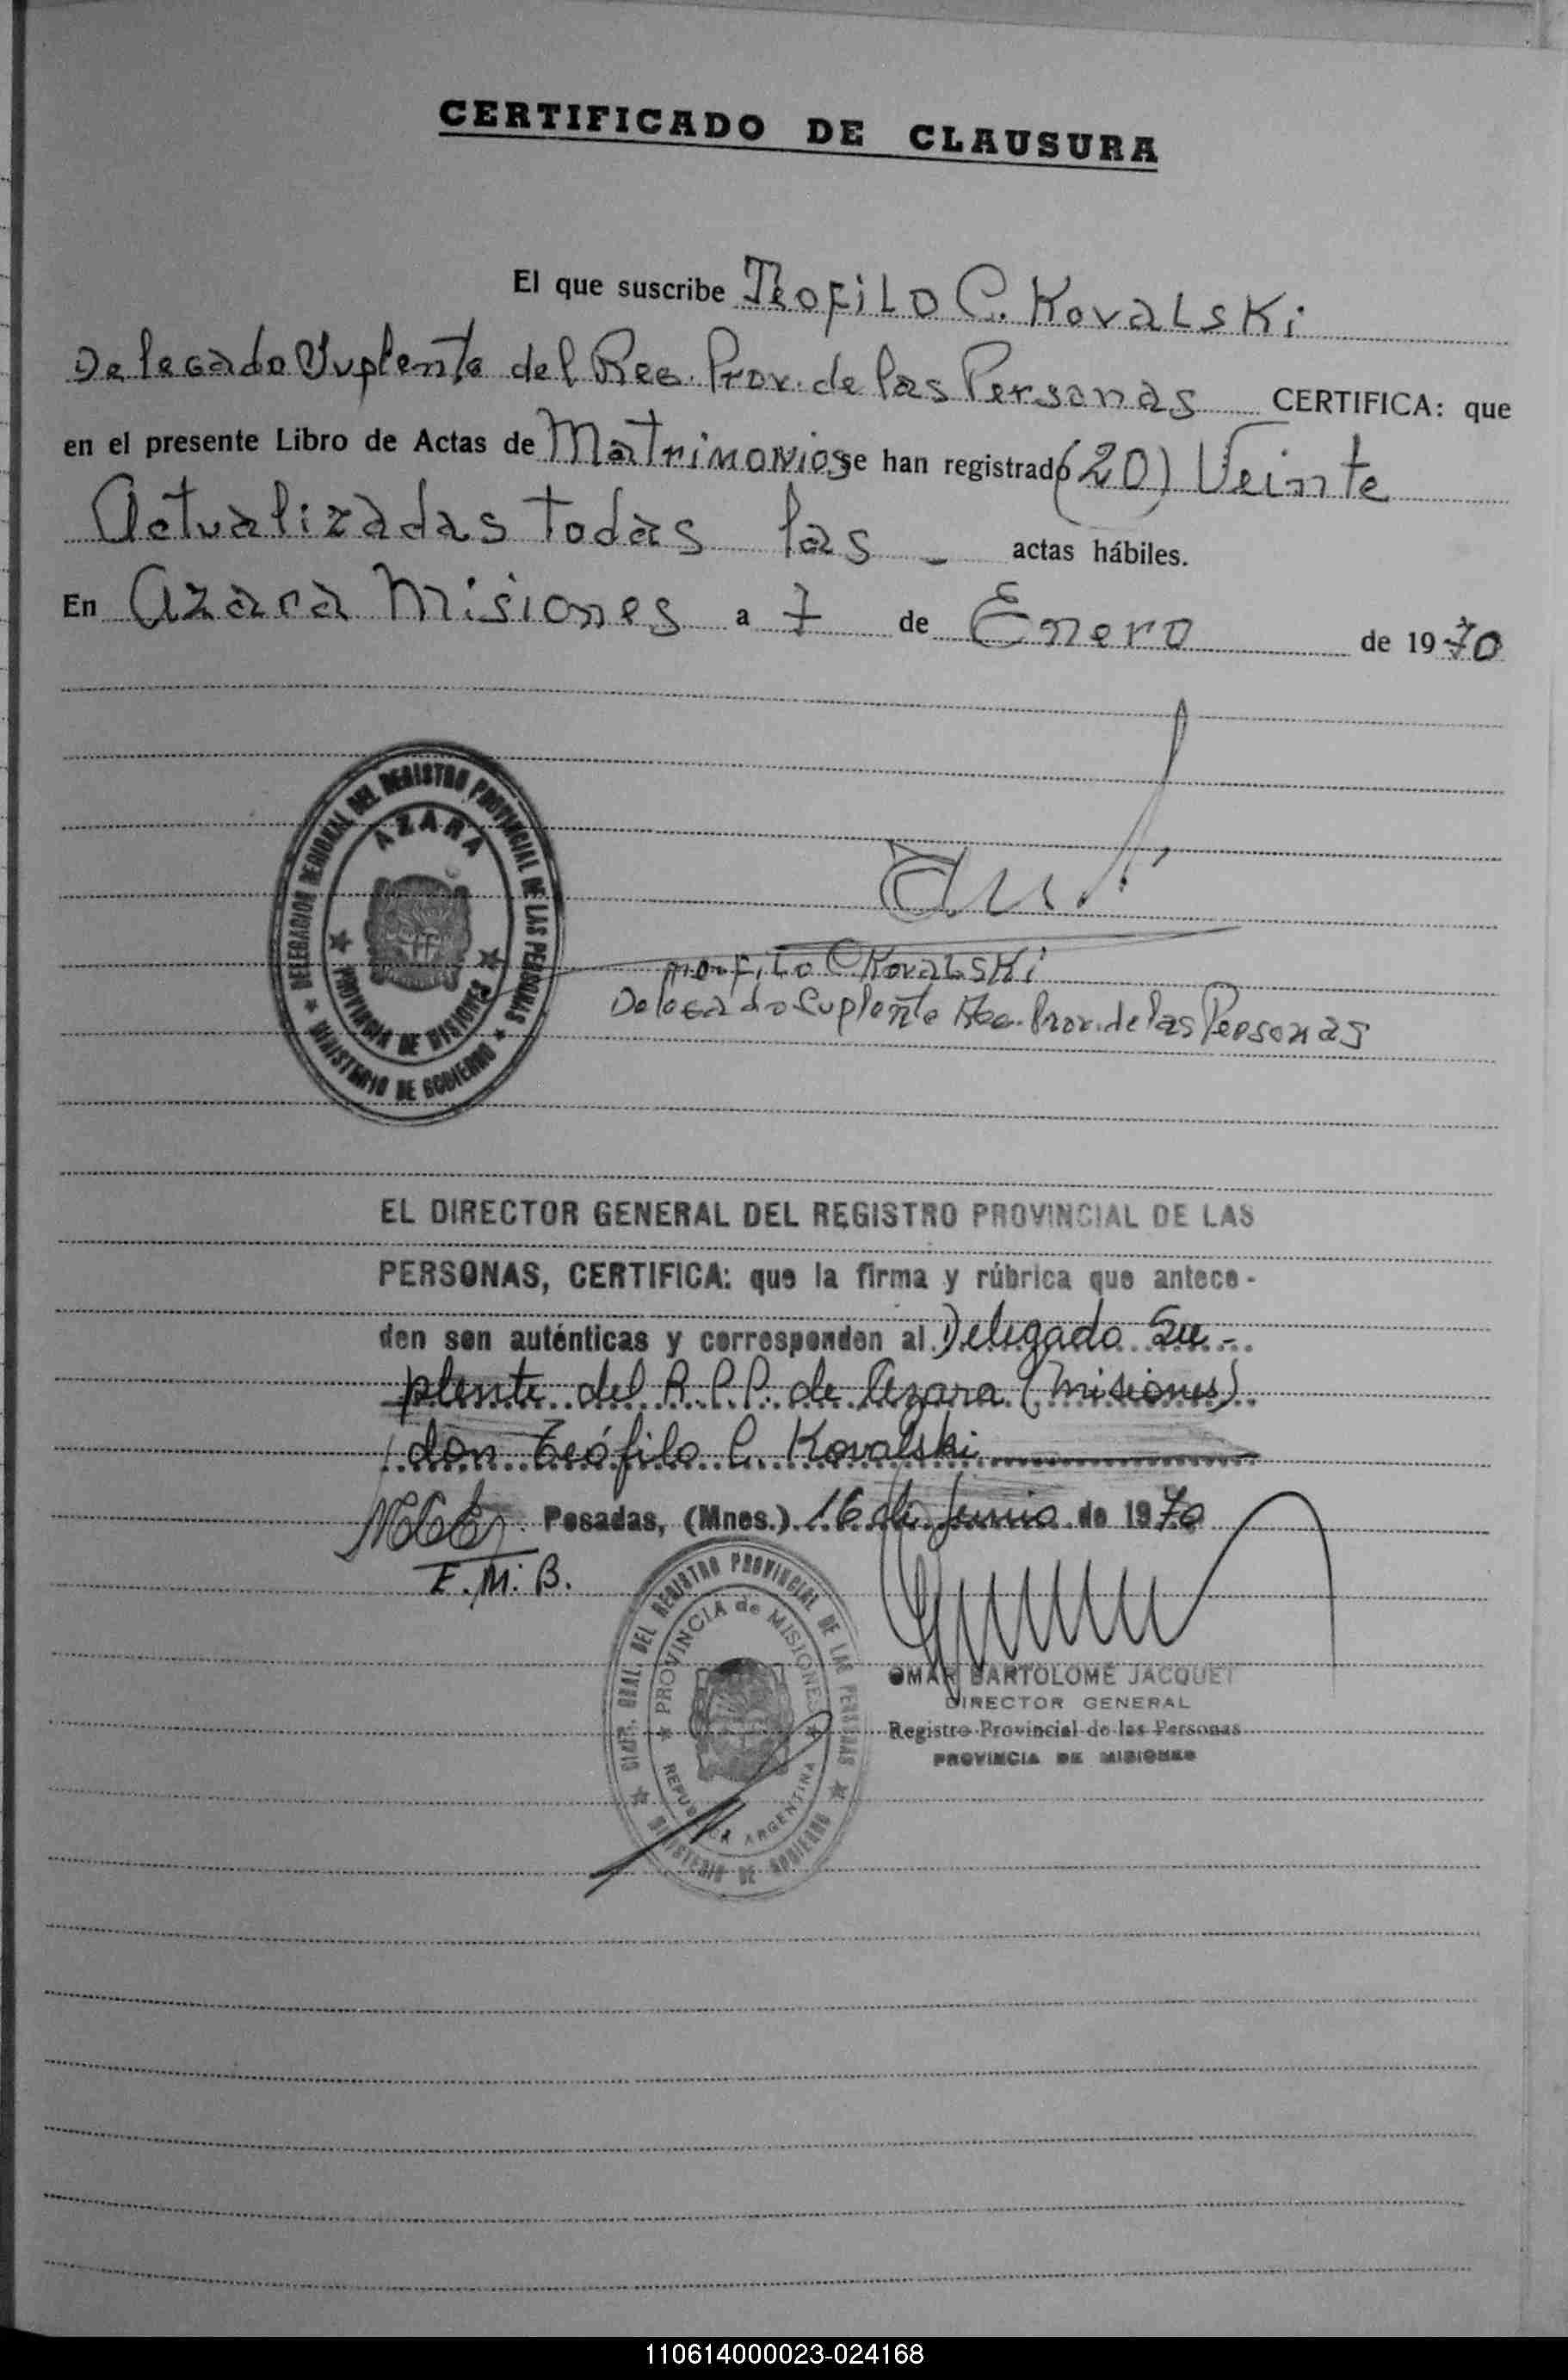 CERTIFICADO DE CLAUSURA
El que suscribe Teofilo C. Kovalski
Delegado Suplente del Reg. Prov. de las Personas CERTIFICA: que
en el presente Libro de Actas de Matrimonios se han registrado (20) Veinte
Actualizadas todas las - actas hábiles.
En Azara Misiones a 7 de Enero de 1970
DELEGACION REGIONAL DEL REGISTRO PROVINCIAL DE LAS PERSONAS
AZARA
PROVINCIA DE MISIONES
MINISTERIO DE GOBIERNO
Teofilo C Kovalski
Delegado Suplente Reg. Prov. de las Personas
EL DIRECTOR GENERAL DEL REGISTRO PROVINCIAL DE LAS
PERSONAS, CERTIFICA: que la firma y rúbrica que antece-
den son auténticas y corresponden al Delegado Su-
plente del R.P.P. de Azara (Misiones)
don Teófilo C. Kovalski
Posadas, (Mnes.) 16 de Junio de 1970
E.M.B.
DIREC. GRAL. DEL REGISTRO PROVINCIAL DE LAS PERSONAS
PROVINCIA de MISIONES
REPUBLICA ARGENTINA
MINISTERIO DE GOBIERNO
OMAR BARTOLOME JACQUET
DIRECTOR GENERAL
Registro Provincial de las Personas
PROVINCIA DE MISIONES
110614000023-024168